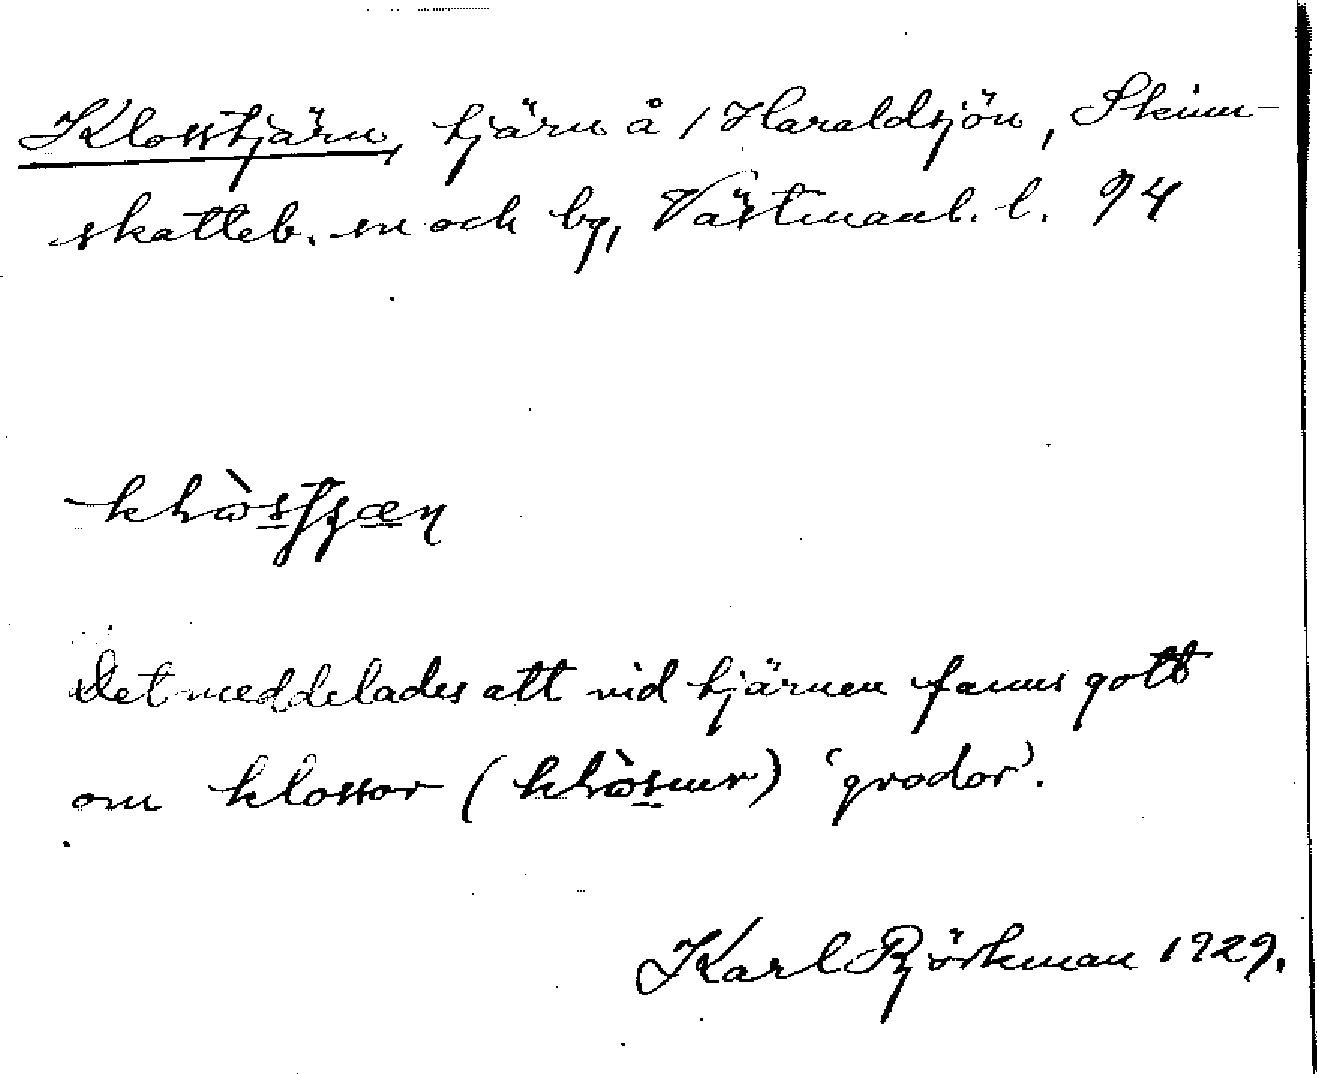 Klosstjärn, tjärn å / Haraldsjön, Skinn-
skatteb. sn och bg, Västmanl. l. 94
Det meddelades att vid tjärnen fanns gott
om klossor ( ) 'grodor'.
Karl Björkman 1929.